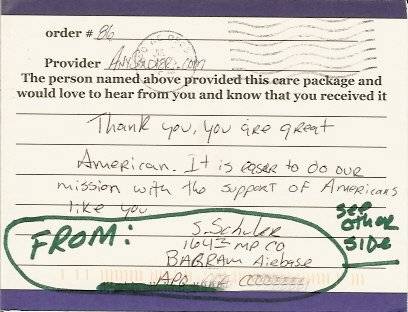 order # 86
Provider AnySoldier.com
The person named above provided this care package and
would love to hear from you and know that you received it
Thank you, you are great
American. It is easer to do our
mission with the support of Americans
like you
see
other
side
FROM:
S. Schuler
164th MP CO
BAGRAM Airbase
APO